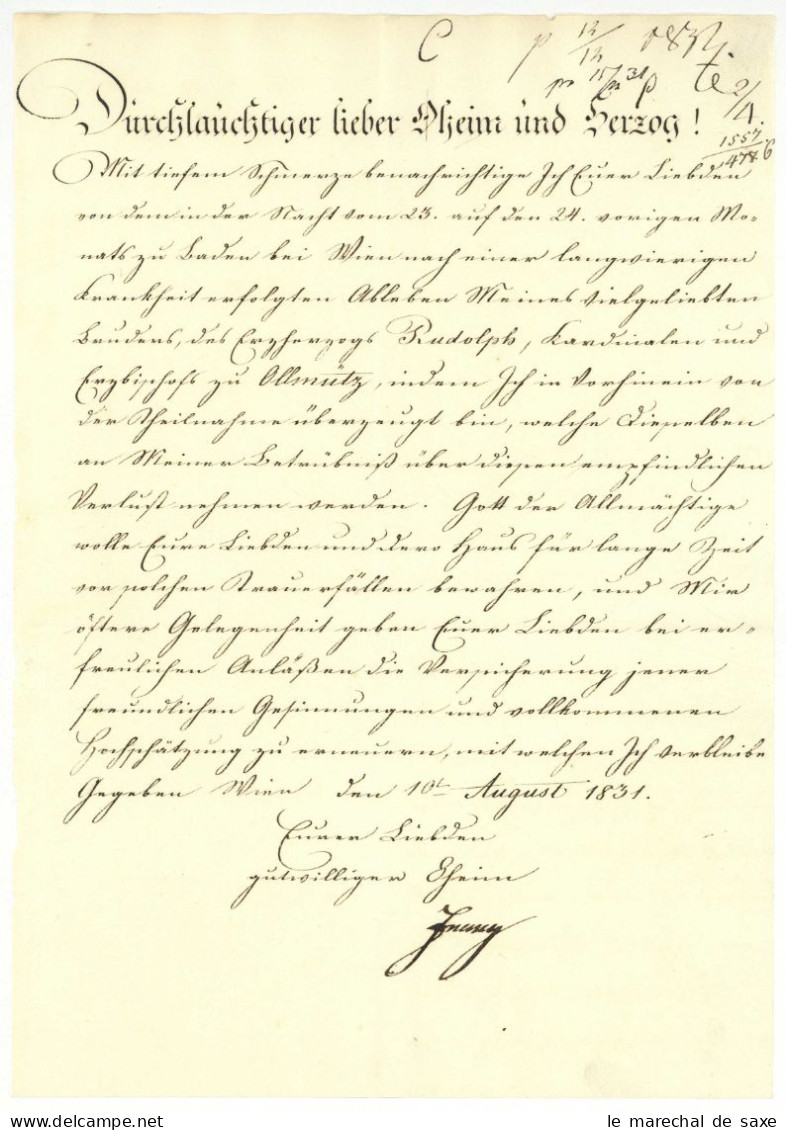 C
Durchlauchtiger lieber Oheim und Herzog!
1557
1478.6
Mit tiefem Schmerze benachrichtige Ich Euer Liebden
von dem in der Nacht vom 23. auf den 24. vorigen Mo-
nats zu Baden bei Wien nach einer langwierigen
Krankheit erfolgten Ableben Meines vielgeliebten
Bruders, des Erzherzogs Rudolph, Kardinalen und
Erzbischofs zu Ollmütz, indem Ich in Vorhinein von
der Theilnahme überzeugt bin, welche Dieselben
an Meiner Betrübniß über diesen empfindlichen
Verlust nehmen werden. Gott der Allmächtige
wolle Eure Liebden und dero Haus für lange Zeit
vor solchen Trauerfällen bewahren, und Mir
öftere Gelegenheit geben Euer Liebden bei er-
freulichen Anläßen die Versicherung jener
freundlichen Gesinnungen und vollkommenen
Hochschätzung zu erneuern, mit welchen Ich verbleibe
Gegeben Wien den 10t. August 1831.
Eurer Liebden
gutwilliger Oheim
Franz
le marechal de saxe